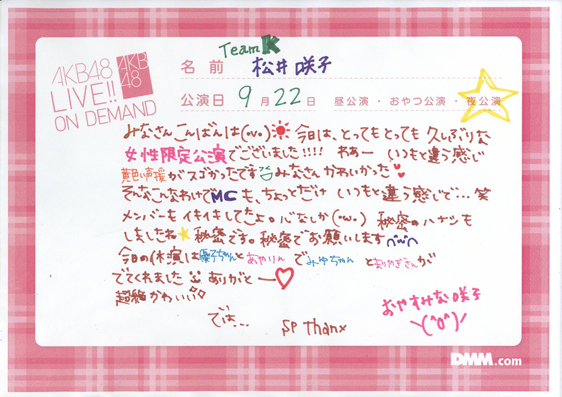 AKB48
LIVE!!
ON DEMAND
AKB
48
Team K
名前 松井咲子
公演日 9月22日 昼公演・おやつ公演・夜公演
みなさんこんばんは(・v・)今日は、とってもとっても久しぶりな
女性限定公演でございました!!!! わぁー いつもと違う感じ
黄色い声援がスゴかったです みなさんかわいかった
そんなこんなわけでMCも、ちょっとだけ いつもと違う感じで…笑
メンバーもイキイキしてたよ。心なしか(・ω・) 秘密のハナシも
しましたね★秘密です。秘密でお願いします
今日の休演は優子ちゃんとあやりんでみゆちゃんと
でてくれました ありがとー♡
超絶かわいい
では… SP Thanx
おやすみな咲子
\(^o^)/
DMM.com